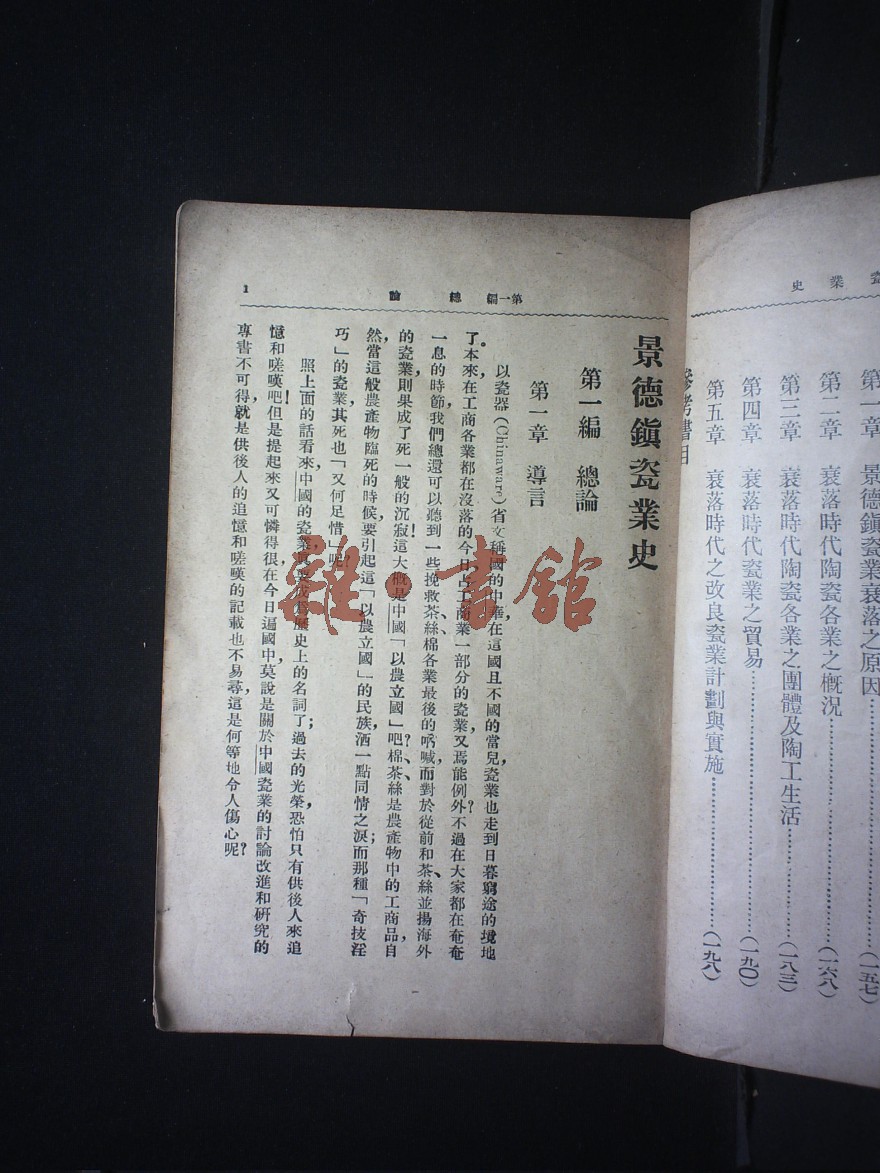 瓷業史
第一章　景德鎮瓷業衰落之原因…………(一五七)
第二章　衰落時代陶瓷各業之概況…………(一六八)
第三章　衰落時代陶瓷各業之團體及陶工生活…………(一八三)
第四章　衰落時代瓷業之貿易…………(一九〇)
第五章　衰落時代之改良瓷業計劃與實施…………(一九八)
參考書目
第一編　總論
1
景德鎮瓷業史
第一編　總論
第一章　導言
以瓷器(Chinaware)省文稱國的中華，在這國且不國的當兒，瓷業也走到日暮窮途的境地
了。本來在工商各業都在沒落的今日，占工商業一部分的瓷業，又焉能例外？不過在大家都在奄奄
一息的時節，我們總還可以聽到一些挽救茶、絲、棉各業最後的吶喊，而對於從前和茶、絲並揚海外
的瓷業，則果成了死一般的沉寂！這大概是中國「以農立國」吧？棉、茶、絲是農產物中的工商品，自
然當這般農產物臨死的時候，要引起這「以農立國」的民族，洒一點同情之淚；而那種「奇技淫
巧」的瓷業，其死也「又何足惜」呢？
照上面的話看來，中國的瓷業，真要成爲歷史上的名詞了；過去的光榮，恐怕只有供後人來追
憶和嗟嘆吧！但是提起來又可憐得很，在今日遍國中，莫說是關於中國瓷業的討論改進和研究的
專書不可得，就是供後人的追憶和嗟嘆的記載也不易尋，這是何等地令人傷心呢？
雜·書館